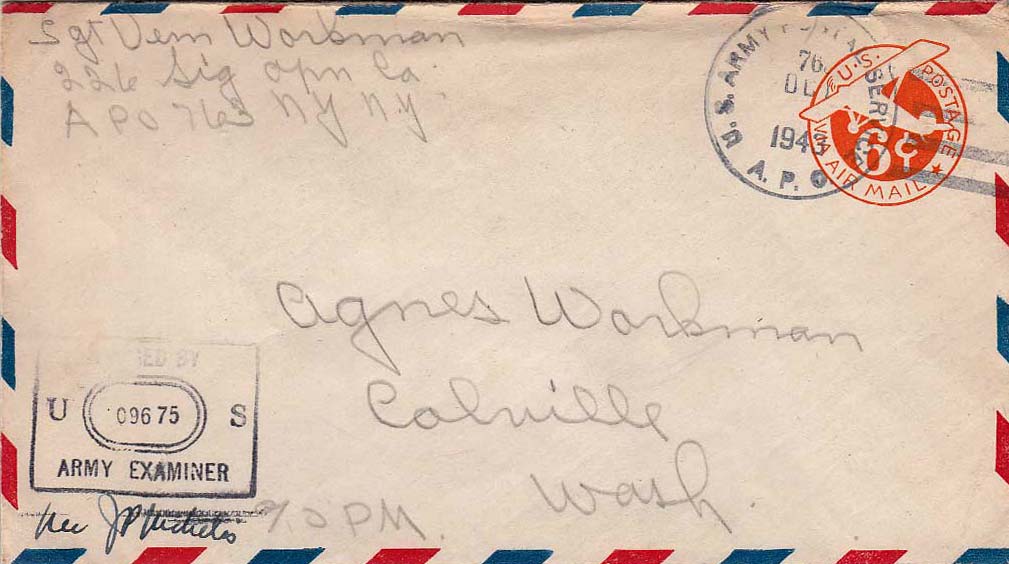 Sgt Vern Workman
226 Sig Opn Co.
APO 763 NY NY.
U.S. ARMY POSTAL SERVICE
76
DE
1943
A.P.O.
U.S. POSTAGE
6¢
VIA AIR MAIL
Agnes Workman
Colville
Wash.
ED BY
U 09675 S
ARMY EXAMINER
PM.